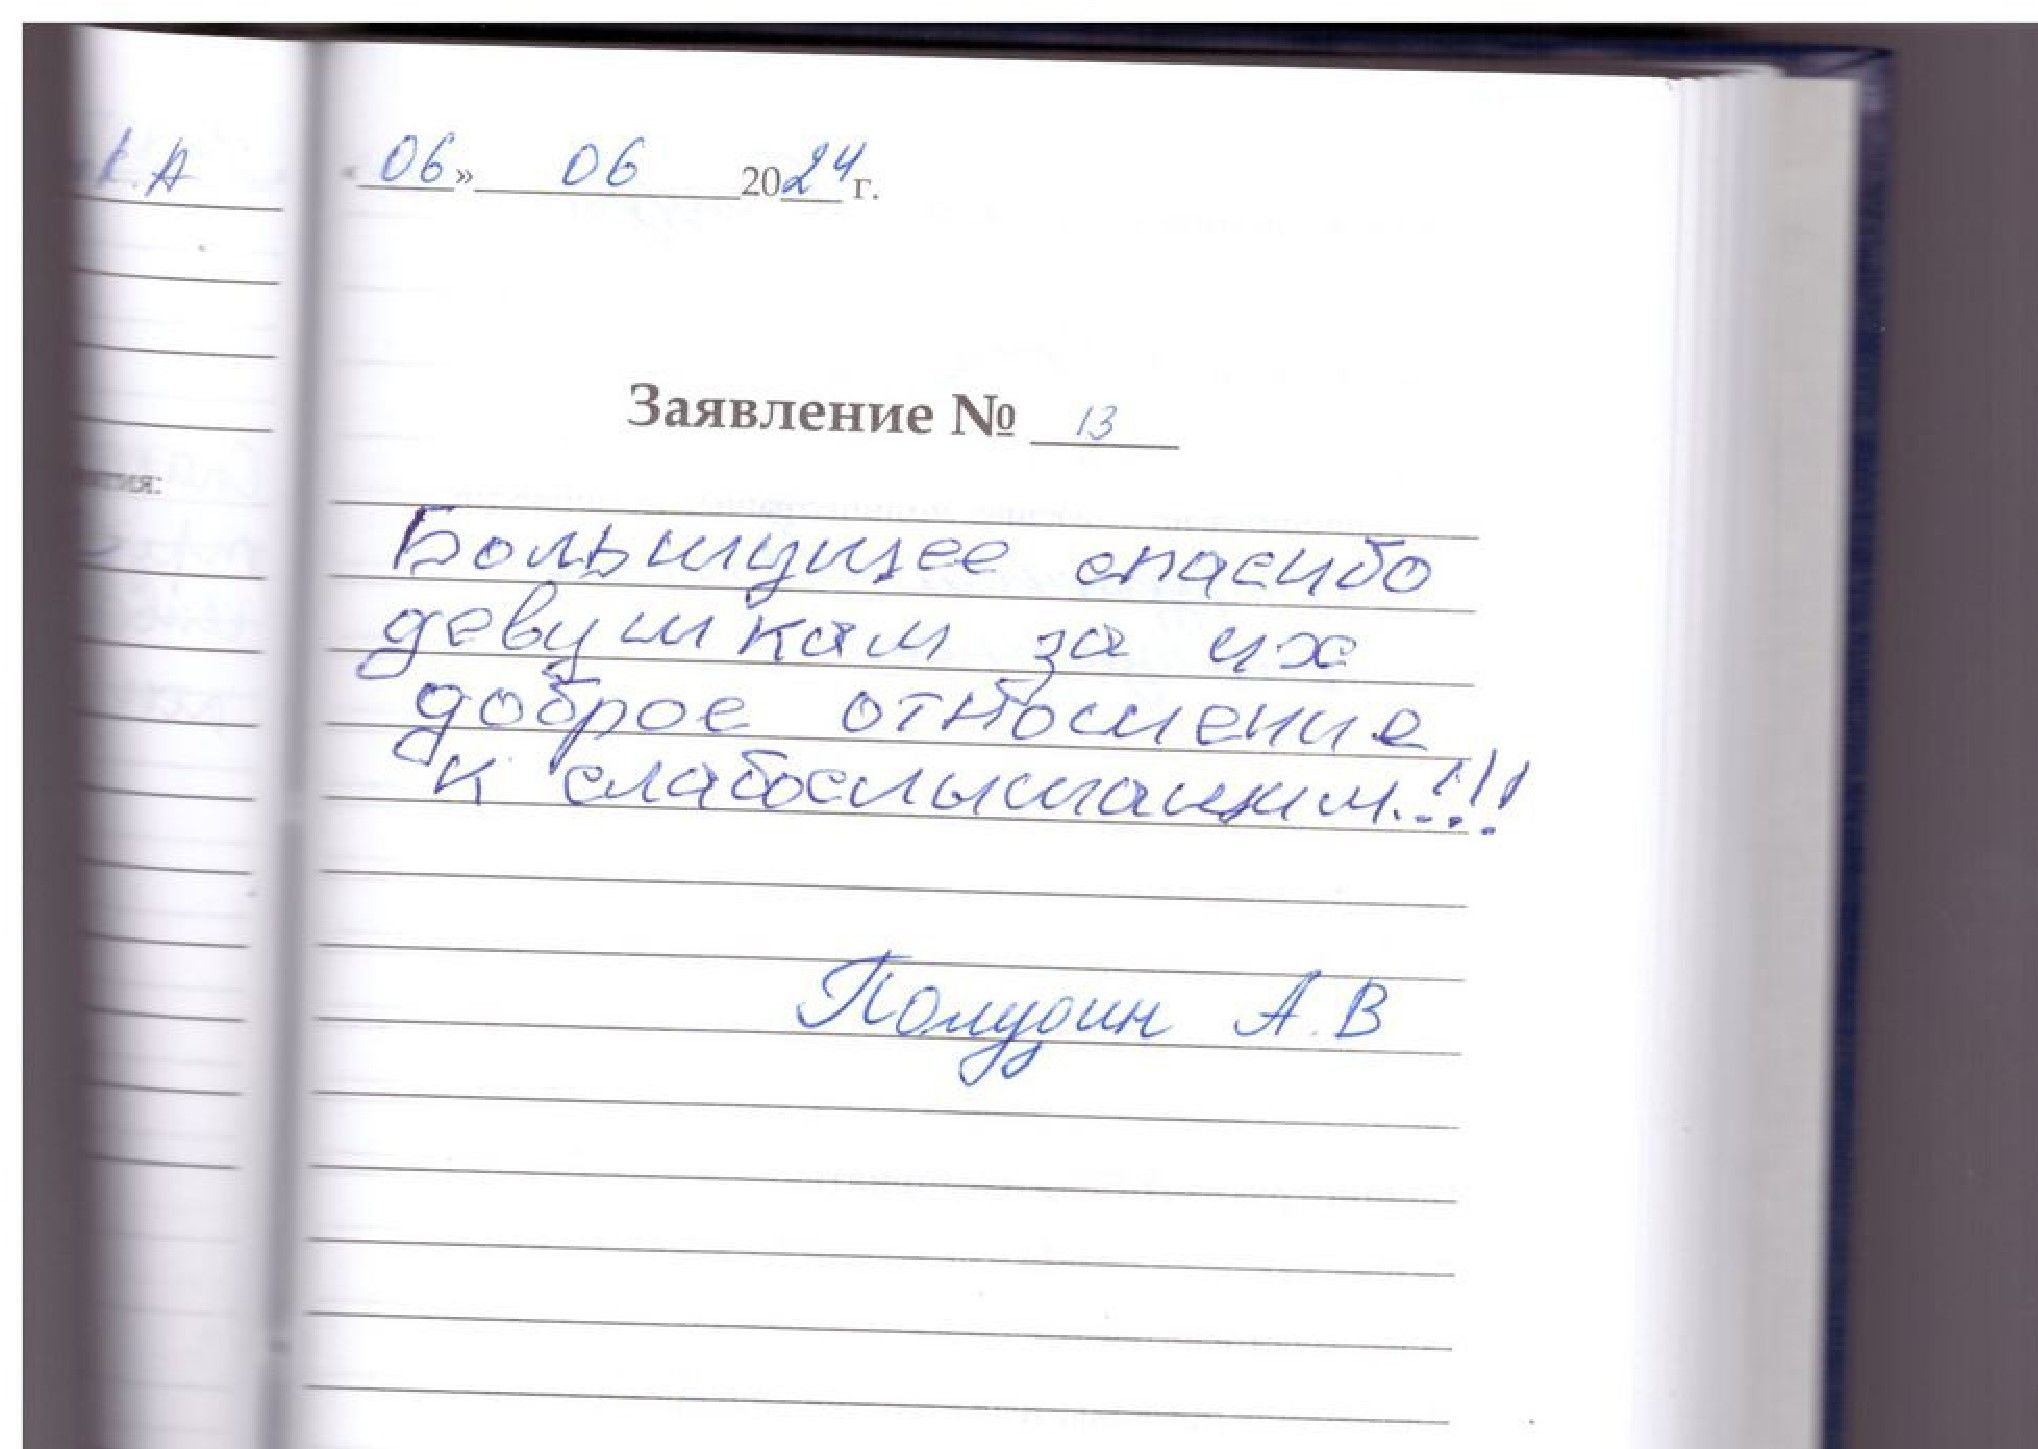 К.А
«06» 06 2024 г.
Заявление № 13
Большущее спасибо
девушкам за их
доброе отношение
к слабослышащим.!!!
Полудин А.В